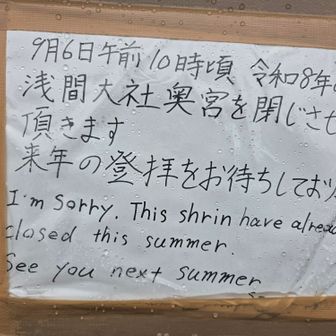 9月6日午前10時頃 令和8年
浅間大社奥宮を閉じさせ
頂きます
来年の登拝をお待ちしており
I'm sorry. This shrin have
closed this summer.
See you next summer